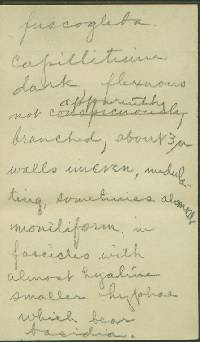 fuscogleba.
capillitium
dark flexuous
apparently
not conspicuously
branched, about 3µ
walls uneven, undula-
ting, sometimes almost
moniliform, in
fascicles with
almost hyaline
smaller hyphae
which bear
basidia.